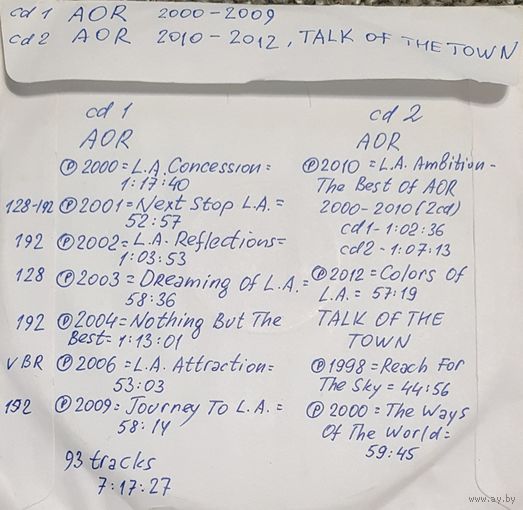 cd 1 AOR 2000-2009
cd 2 AOR 2010-2012, TALK OF THE TOWN
cd 1
AOR
Ⓟ 2000 = L.A. Concession =
1:17:40
128-192 Ⓟ 2001 = Next Stop L.A. =
52:57
192 Ⓟ 2002 = L.A. Reflections =
1:03:53
128 Ⓟ 2003 = Dreaming Of L.A. =
58:36
192 Ⓟ 2004 = Nothing But The
Best = 1:13:01
VBR Ⓟ 2006 = L.A. Attraction =
53:03
192 Ⓟ 2009 = Journey To L.A. =
58:14
93 tracks
7:17:27
cd 2
AOR
Ⓟ 2010 = L.A. Ambition -
The Best Of AOR
2000-2010 (2cd)
cd 1 - 1:02:36
cd 2 - 1:07:13
Ⓟ 2012 = Colors Of
L.A. = 57:19
TALK OF THE
TOWN
Ⓟ 1998 = Reach For
The Sky = 44:56
Ⓟ 2000 = The Ways
Of The World =
59:45
www.ay.by